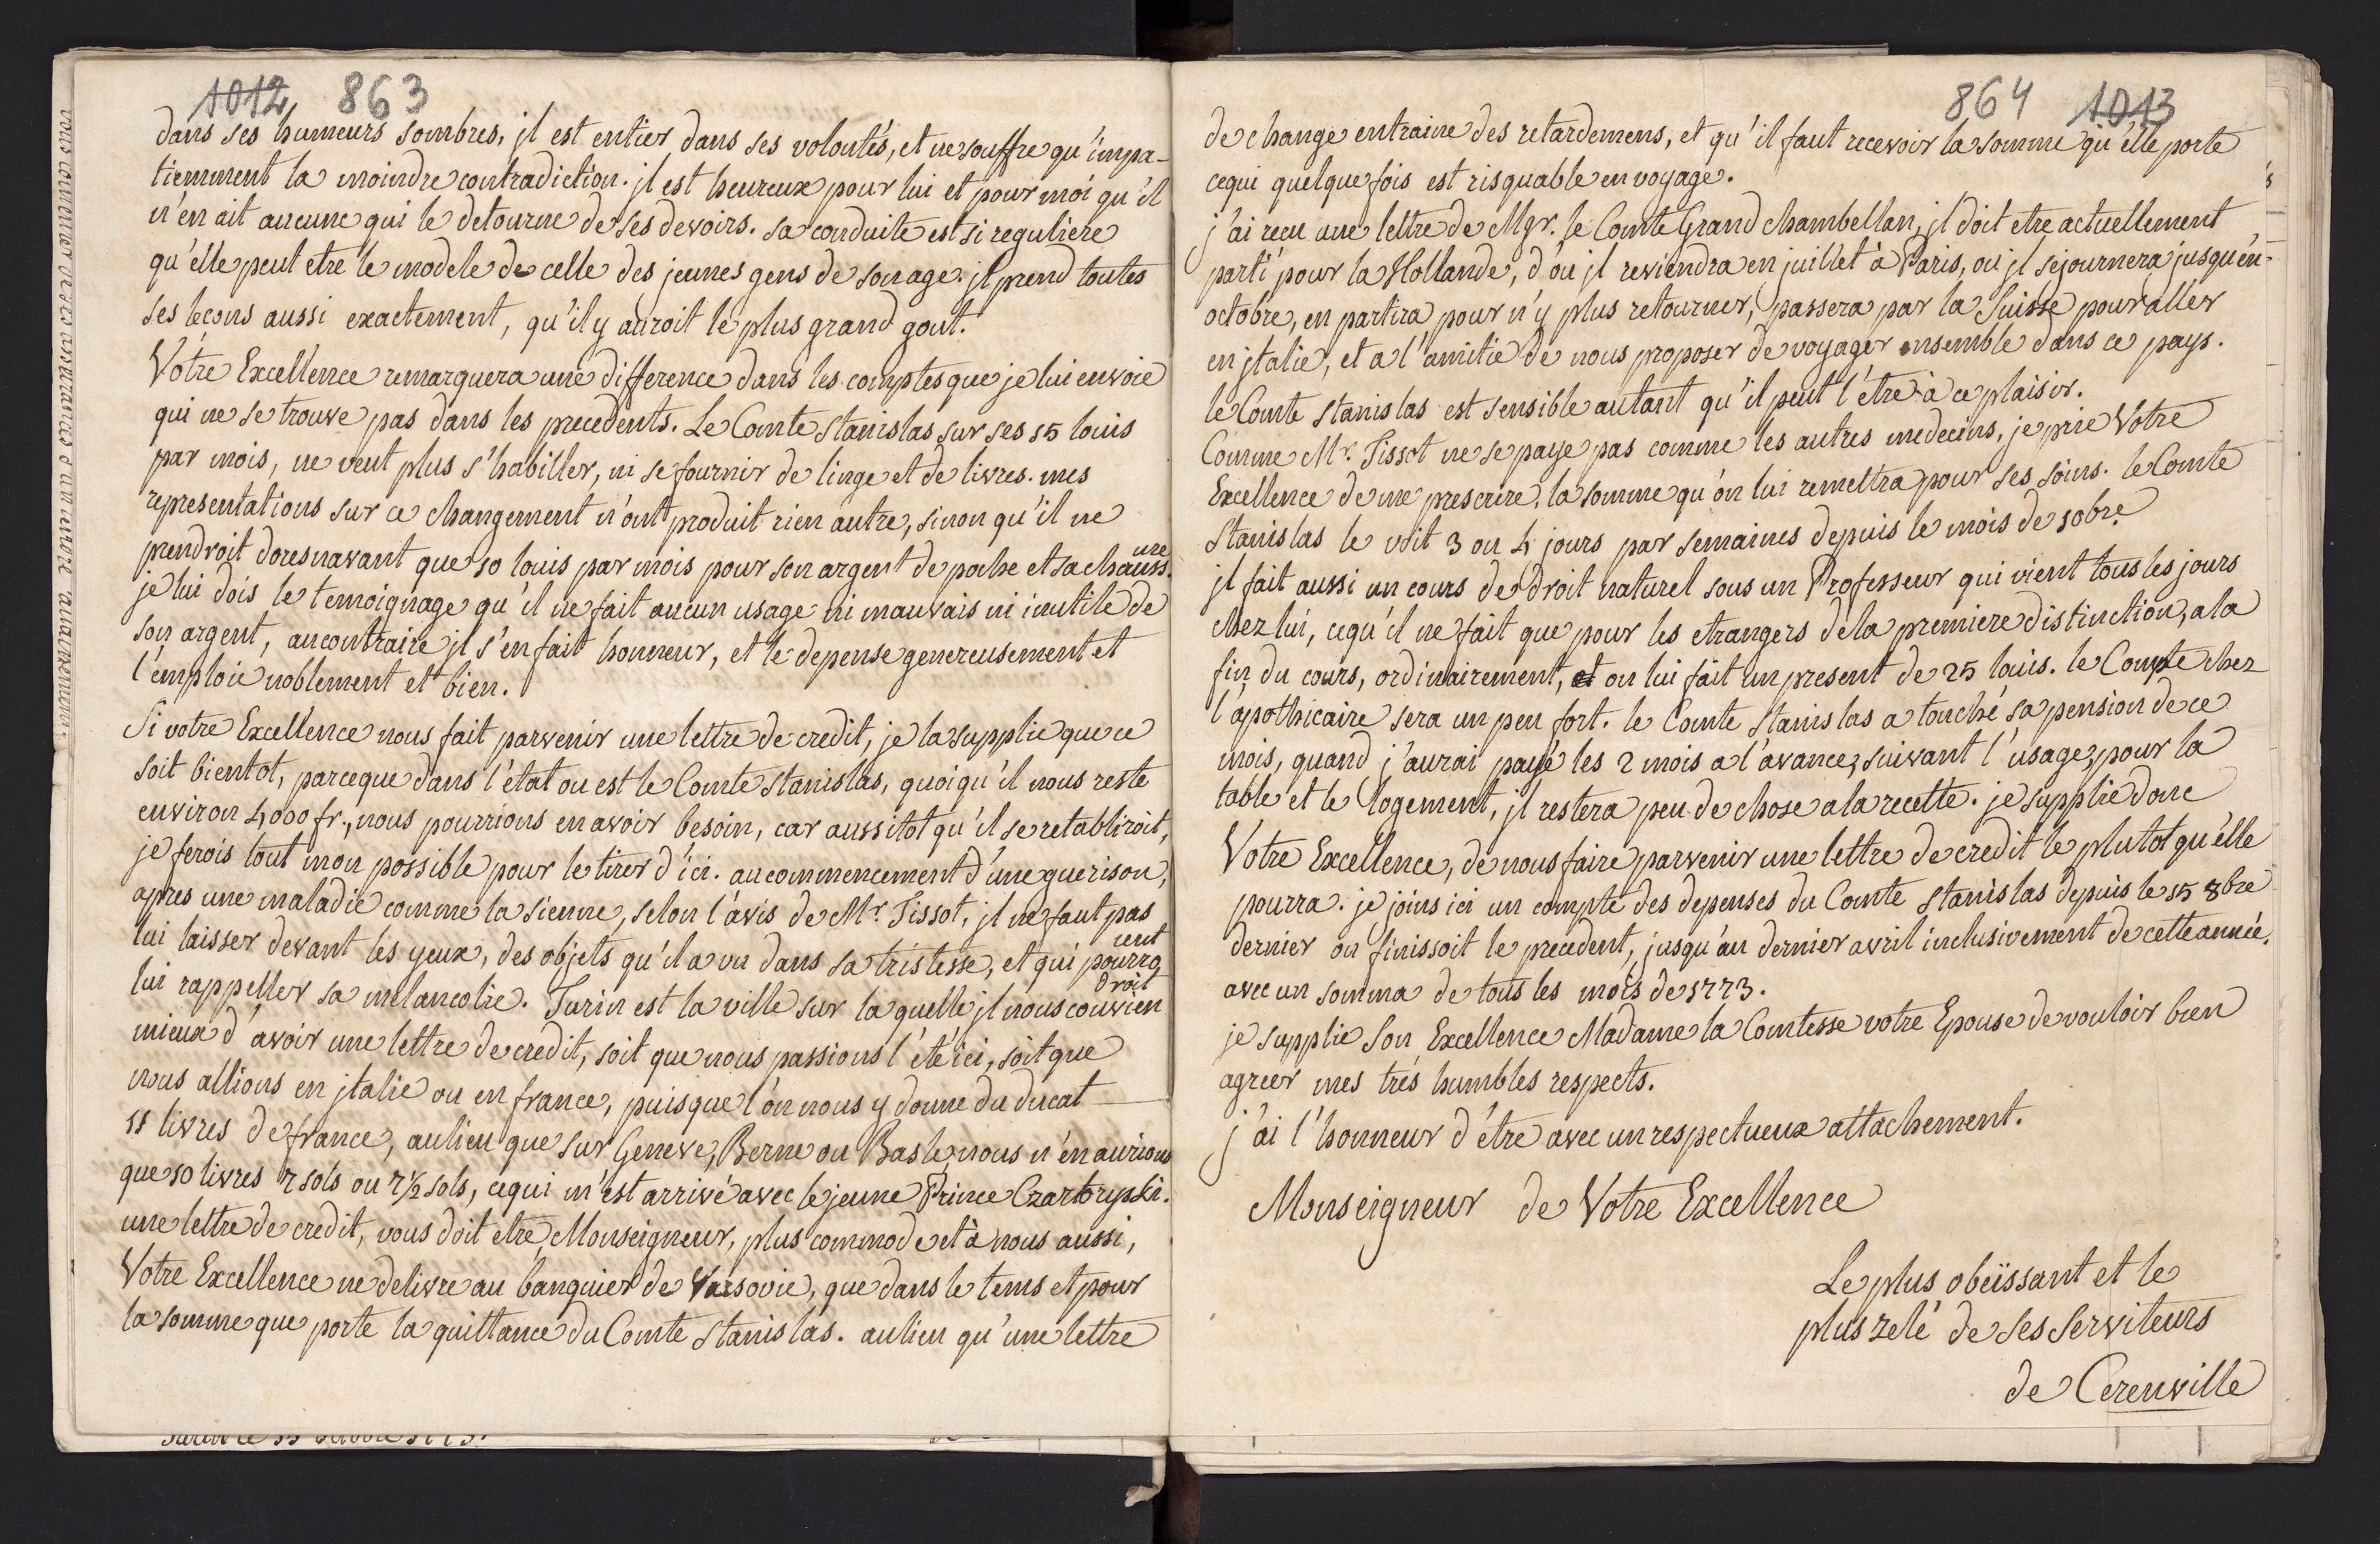 1012 863
dans ses humeurs sombres, jl est entier dans ses volontés, et ne souffre qu'impa-
tiemment la moindre contradiction. jl est heureux pour lui et pour moi qu'il
n'en ait aucune qui le detourne de ses devoirs. sa conduite est si reguliere
qu'elle peut etre le modele de celle des jeunes gens de son age. jl prend toutes
ses lecons aussi exactement, qu'il y auroit le plus grand gout.
Votre Excellence remarquera une difference dans les comptes que je lui envoie
qui ne se trouve pas dans les precedents. Le Comte Stanislas sur ses 15 louis
par mois, ne veut plus s'habiller, ni se fournir de linge et de livres. mes
representations sur ce changement n'ont produit rien autre, sinon qu'il ne
prendroit doresnavant que 10 louis par mois pour son argent de poche et sa chaussure
je lui dois le temoignage qu'il ne fait aucun usage ni mauvais ni inutile de
son argent, aucontraire jl s'en fait honneur, et le depense genereusement et
l'emploie noblement et bien.
Si votre Excellence nous fait parvenir une lettre de credit, je la supplie que ce
soit bientot, parceque dans l'état ou est le Comte Stanislas, quoiqu'il nous reste
environ 4,000 fr., nous pourrions en avoir besoin, car aussitot qu'il se retabliroit,
je ferois tout mon possible pour le tirer d'ici. au commencement d'une guerison,
apres une maladie comme la sienne, selon l'avis de Mr. Tissot, jl ne faut pas
lui laisser devant les yeux, des objets qu'il a vu dans sa tristesse, et qui pourroient
lui rappeller sa melancolie. Turin est la ville sur laquelle jl nous conviendroit
mieux d'avoir une lettre de credit, soit que nous passions l'été ici, soit que
nous allions en jtalie ou en france, puisque l'on nous y donne du ducat
11 livres de france, aulieu que sur Geneve, Berne ou Basle, nous n'en aurions
que 10 livres 7 sols ou 7½ sols, cequi m'est arrivé avec le jeune Prince Czartoryski.
une lettre de credit, vous doit etre, Monseigneur, plus commode et à nous aussi,
Votre Excellence ne delivre au banquier de Varsovie, que dans le tems et pour
la somme que porte la quittance du Comte Stanislas. aulieu qu'une lettre
864 1013
de change entraine des retardemens, et qu'il faut recevoir la somme qu'elle porte
cequi quelquefois est risquable en voyage.
j'ai recu une lettre de Mgr. le Comte Grand Chambellan, jl doit etre actuellement
parti pour la Hollande, d'où jl reviendra en juillet à Paris, ou jl sejournera jusqu'en-
octobre, en partira pour n'y plus retourner, passera par la Suisse pour aller
en jtalie, et a l'amitié de nous proposer de voyager ensemble dans ce pays.
le Comte Stanislas est sensible autant qu'il peut l'etre à ce plaisir.
Comme Mr. Tissot ne se paye pas comme les autres medecins, je prie Votre
Excellence de me prescrire, la somme qu'on lui remettra pour ses soins. le Comte
Stanislas le voit 3 ou 4 jours par semaines depuis le mois de 10bre
jl fait aussi un cours de droit naturel sous un Professeur qui vient tous les jours
chez lui, cequ'il ne fait que pour les etrangers de la premiere distinction, a la
fin du cours, ordinairement, et on lui fait un present de 25 louis. le Compte chez
l'apothicaire sera un peu fort. le Comte Stanislas a touché sa pension de ce
mois, quand j'aurai payé les 2 mois a l'avance, suivant l'usage, pour la
table et le logement, jl restera peu de chose a la recette. je supplie donc
Votre Excellence, de nous faire parvenir une lettre de credit le plutot qu'elle
pourra. je joins ici un compte des depenses du Comte Stanislas depuis le 15 8bre
dernier ou finissoit le precedent, jusqu'au dernier avril inclusivement de cette année,
avec un somma de tous les mois de 1773.
je supplie Son Excellence Madame la Comtesse votre Epouse de vouloir bien
agreer mes trés humbles respects.
j'ai l'honneur d'étre avec un respectueux attachement.
Monseigneur de Votre Excellence
Le plus obeïssant et le
plus zelé de ses serviteurs
de Cerenville